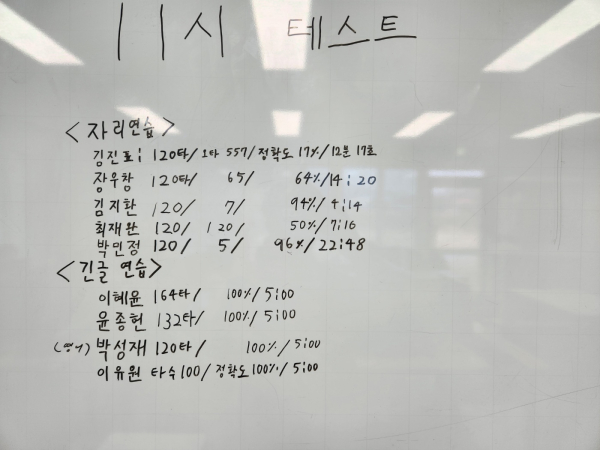 11시 테스트
<자리연습>
김진표: 120타/ 오타 557/ 정확도 17%/ 12분 17초
장우창 120타/ 65/ 64%/ 14:20
김지환 120/ 7/ 94%/ 4:14
최재완 120/ 120/ 50%/ 7:16
박민정 120/ 5/ 96%/ 22:48
<긴글 연습>
이혜윤 164타/ 100%/ 5:00
윤종헌 132타/ 100%/ 5:00
(영어) 박성재 120타/ 100%/ 5:00
이유원 타수 100/ 정확도 100%/ 5:00